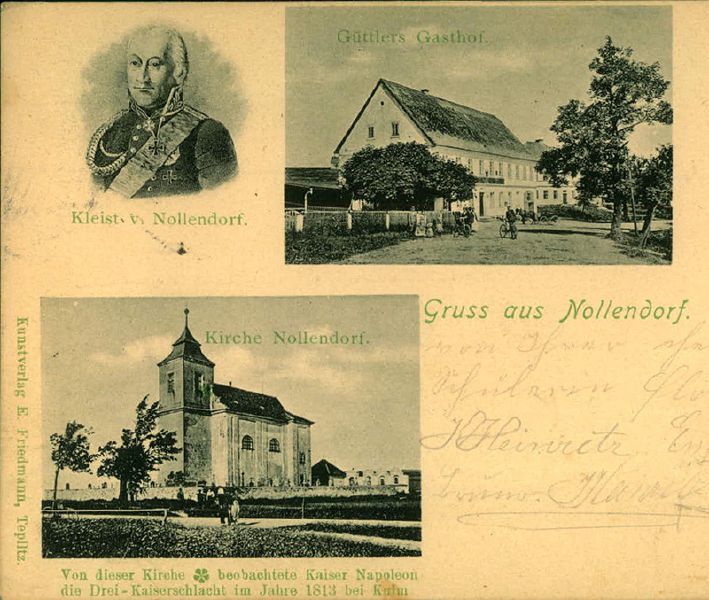 Güttlers Gasthof.
Kleist v. Nollendorf.
Gruss aus Nollendorf.
Kirche Nollendorf.
von Ihrer
Schülerin
Heinretz
Kunstverlag E. Friedmann, Teplitz.
Von dieser Kirche beobachtete Kaiser Napoleon
die Drei-Kaiserschlacht im Jahre 1813 bei Kulm